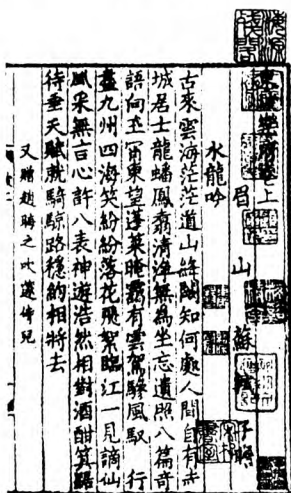 東坡樂府卷上
眉山 蘇軾 子瞻
水龍吟
古來雲海茫茫道山絳闕知何處人間自有赤
城居士龍蟠鳳翥清淨無為坐忘遺照八篇奇
語向玉霄東望蓬萊晻靄有雲駕驂風馭 行
盡九州四海笑紛紛落花飛絮臨江一見謫仙
風采無言心許八表神遊浩然相對酒酣箕踞
待垂天賦就騎鯨路穩約相將去
又贈趙晦之吹笛侍兒